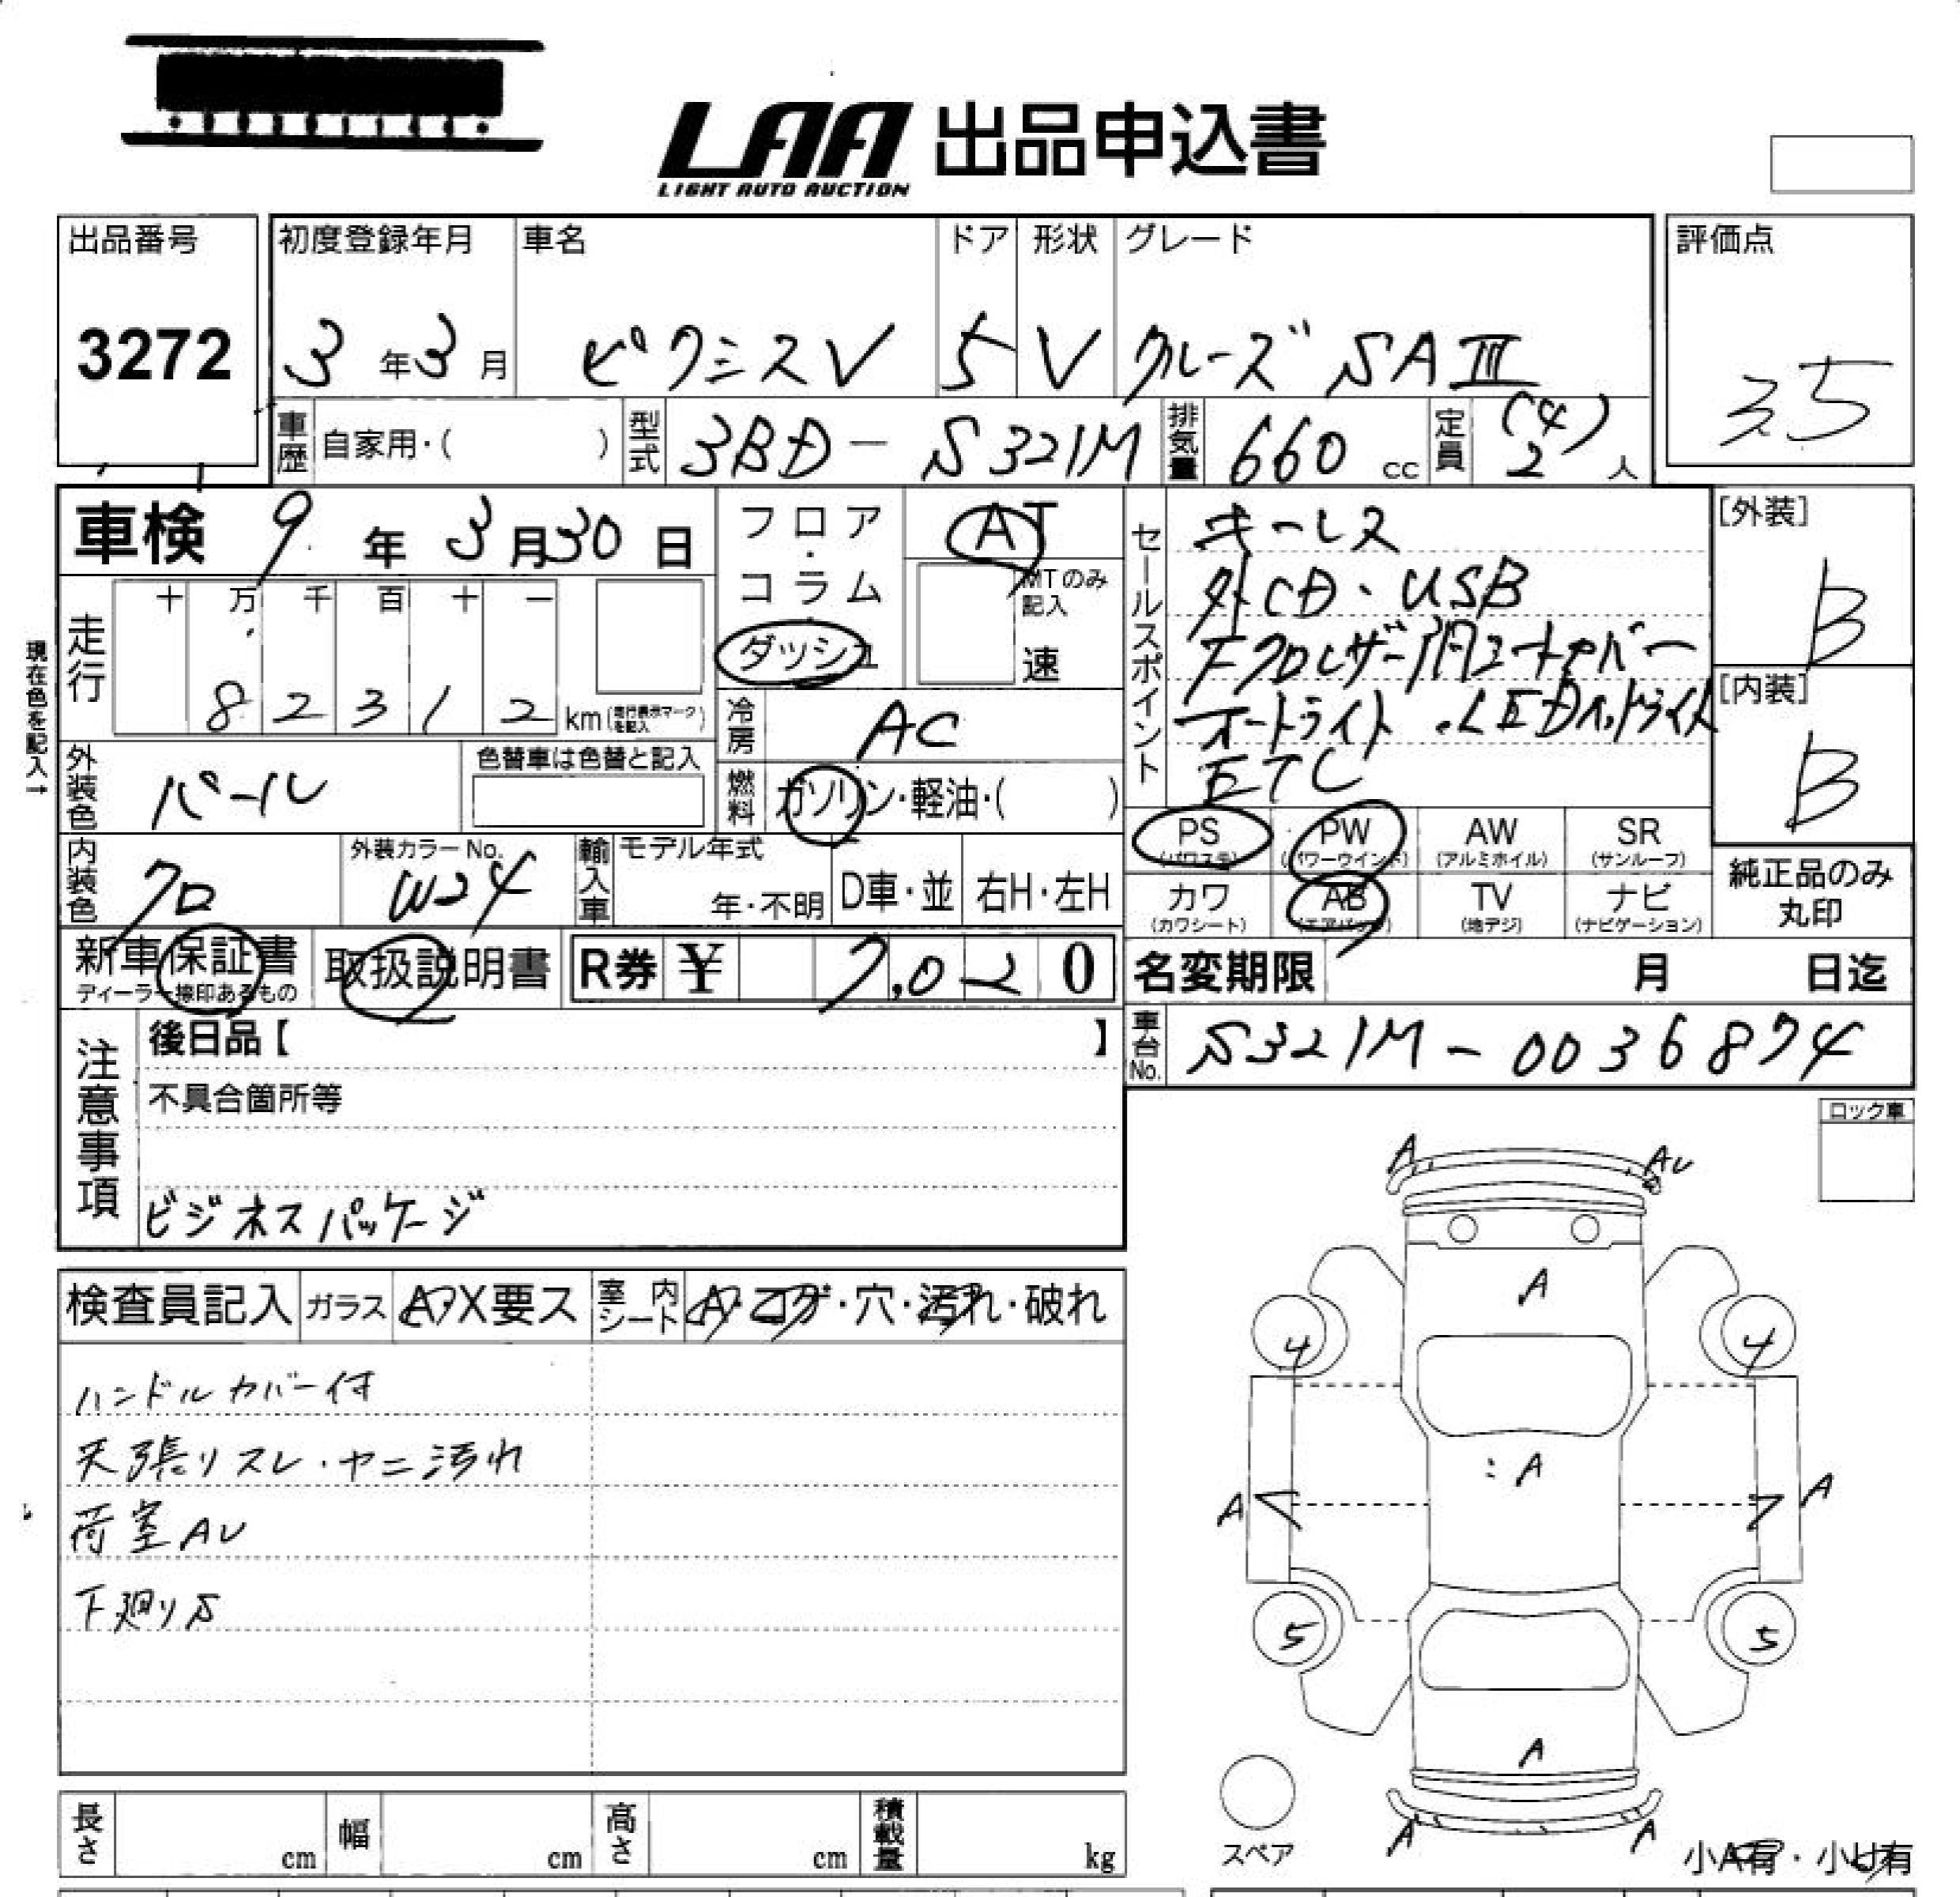 LAA 出品申込書
LIGHT AUTO AUCTION
出品番号
3272
初度登録年月
3年3月
車名
ピクシスV
ドア
5
形状
V
グレード
クルーズ SAⅢ
評価点
3.5
車歴 自家用・( )
型式 3BD-S321M
排気量 660 cc
定員 (4) 2 人
車検 9年3月30日
フロア・コラム・ダッシュ
AT
MTのみ記入
速
現在色を記入→
走行 十 万 千 百 十 一
8 2 3 1 2 km(走行表示マークを記入)
冷房 AC
燃料 ガソリン・軽油・( )
外装色 パール
色替車は色替と記入
内装色 クロ
外装カラーNo. W24
輸入車 モデル年式 年・不明 D車・並 右H・左H
新車保証書
ディーラー捺印あるもの
取扱説明書
R券 ¥ 7,020
セールスポイント
キーレス
外CD・USB
オートライト・LEDヘッドライト
ETC
[外装]
B
[内装]
B
PS (パワステ)
PW (パワーウインド)
AW (アルミホイル)
SR (サンルーフ)
カワ (カワシート)
AB (エアバッグ)
TV (地デジ)
ナビ (ナビゲーション)
純正品のみ丸印
名変期限 月 日迄
車台No. S321M-0036874
注意事項
後日品【 】
不具合箇所等
ビジネスパッケージ
ロック車
検査員記入 ガラス A・X要ス 室内シート A・コゲ・穴・汚れ・破れ
ハンドルカバー付
天張りスレ・ヤニ汚れ
荷室AU
下廻りS
A AU
A
4 4
:A
A A
5 5
A
A A
スペア
小A有・小U有
長さ cm 幅 cm 高さ cm 積載量 kg